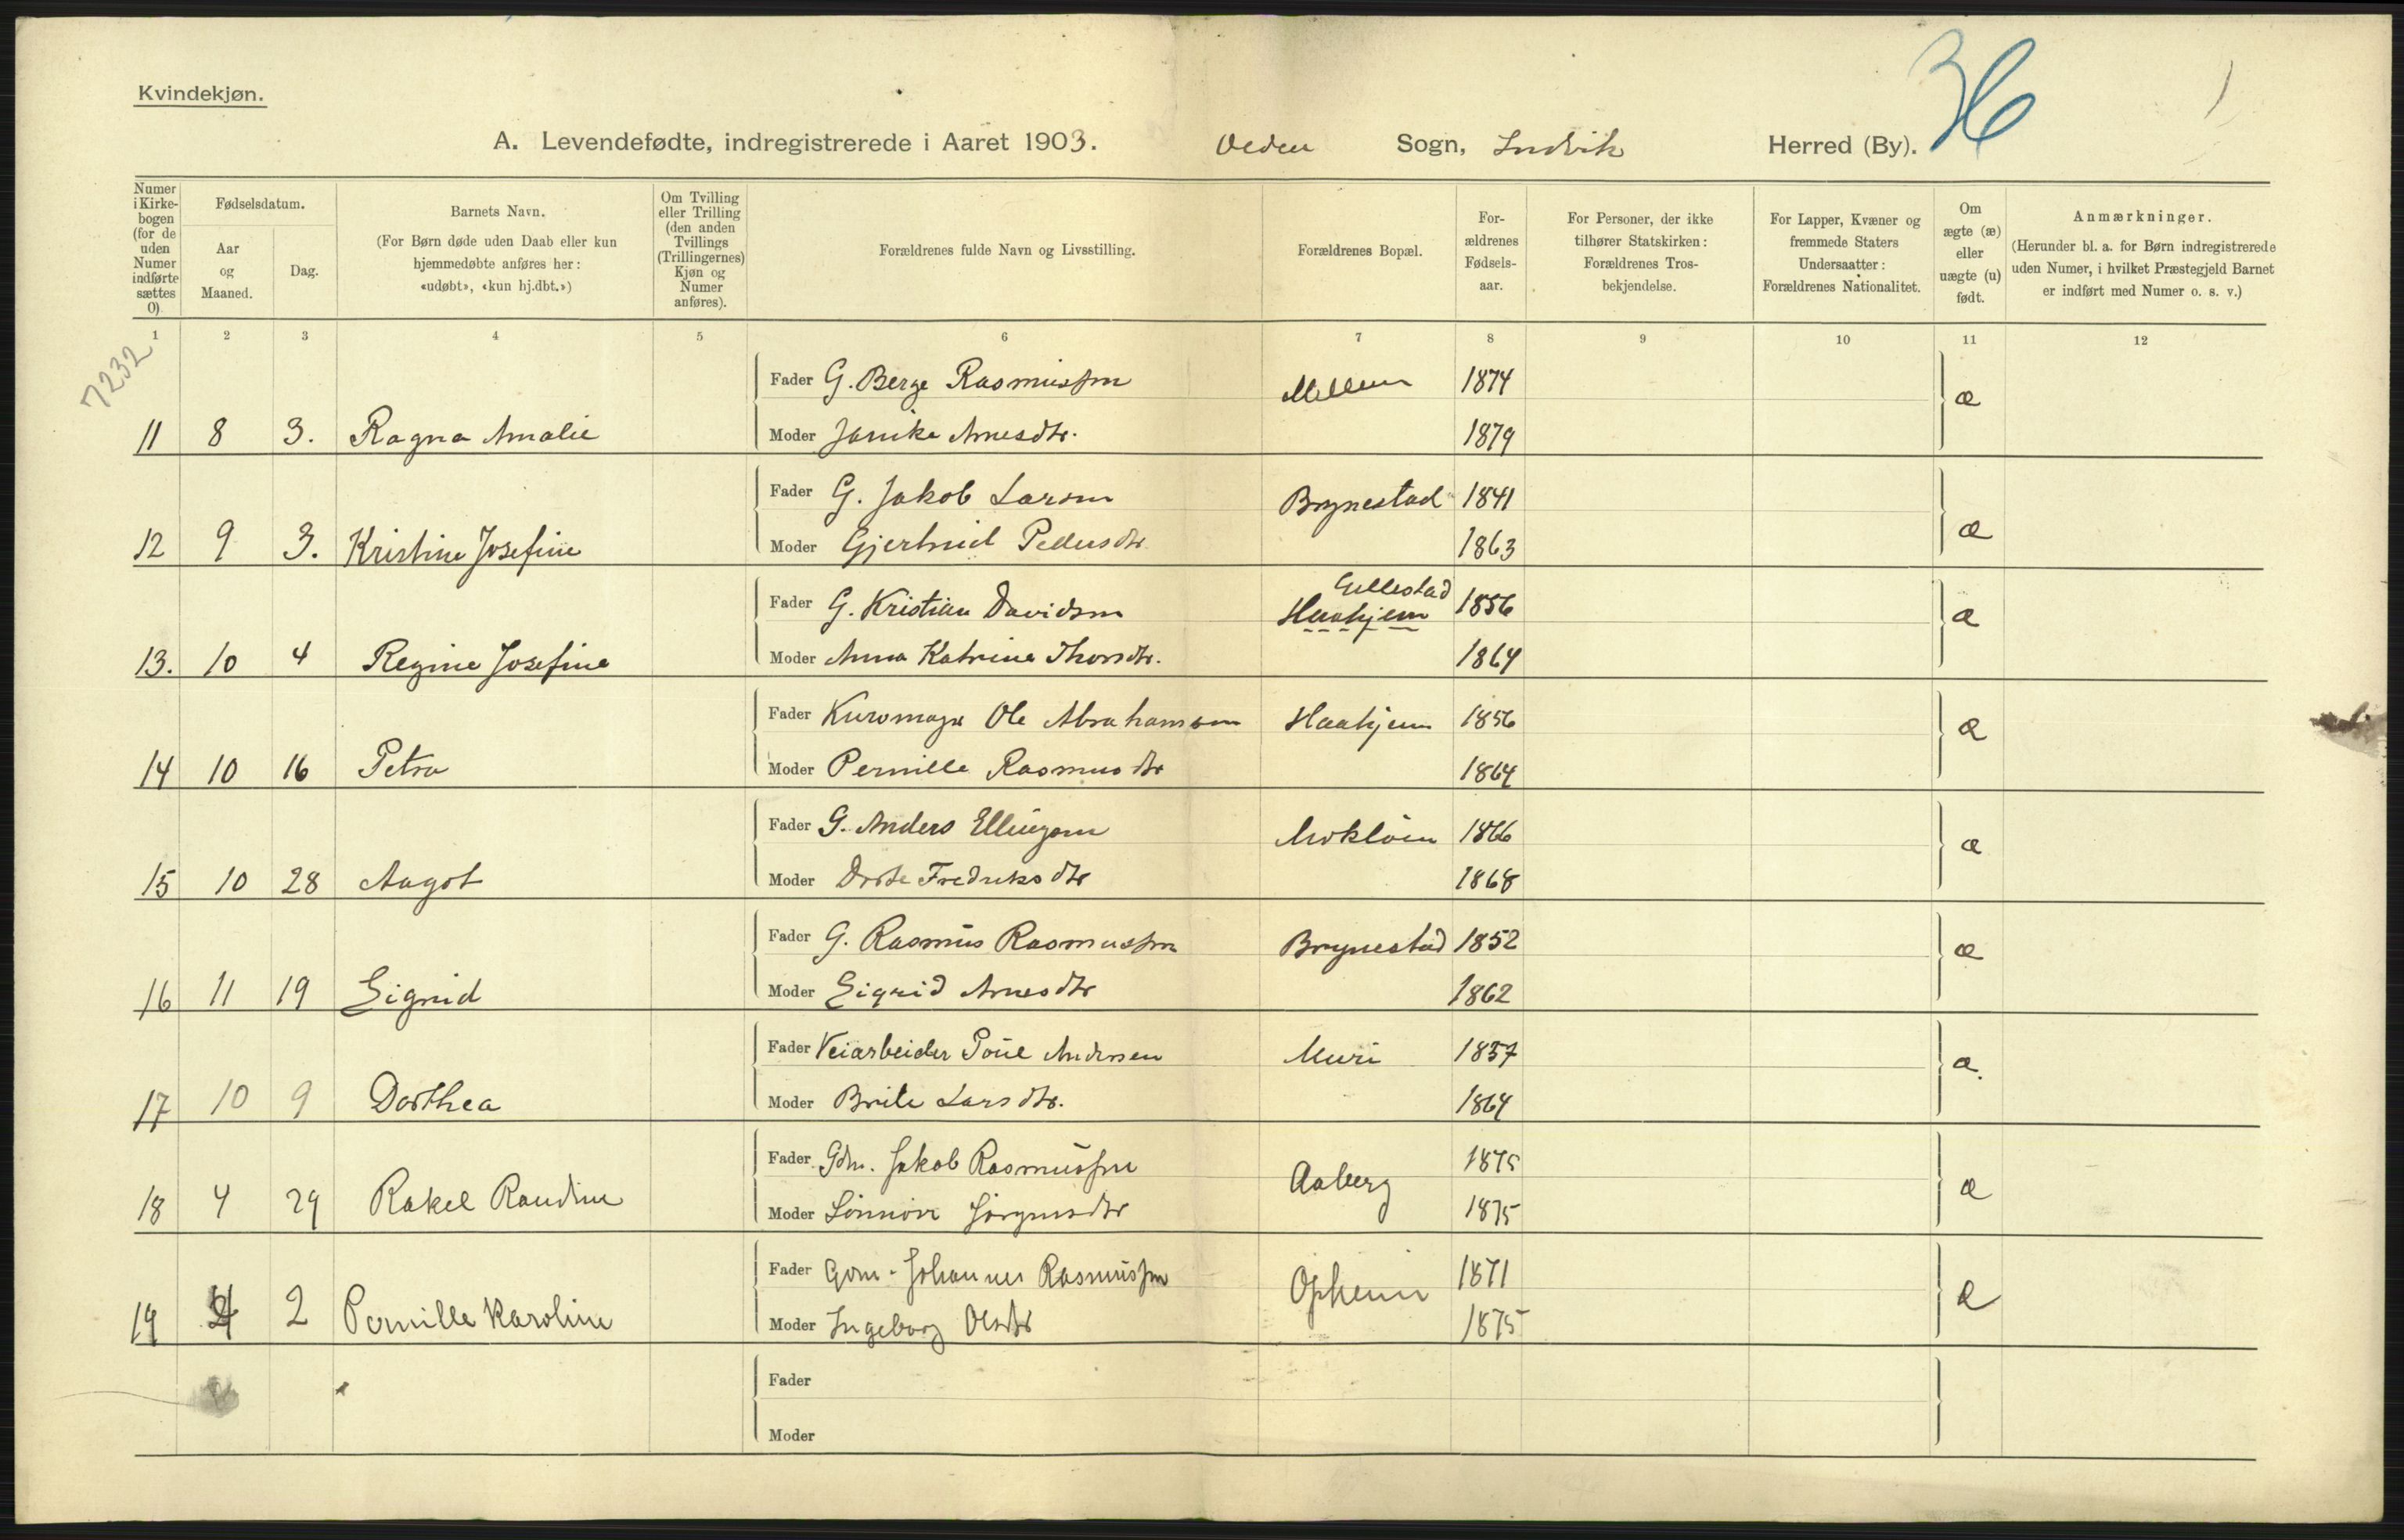 36
Kvindekjøn.
A. Levendefødte, indregistrerede i Aaret 1903. Veden Sogn, Indvik Herred (By).
Numer i Kirke-bogen (for de uden Numer indførte sættes 0)
Fødselsdatum.
Aar og Maaned.
Dag.
Barnets Navn.
(For Børn døde uden Daab eller kun hjemmedøbte anføres her: «udøbt», «kun hj.dbt.»)
Om Tvilling eller Trilling (den anden Tvillings (Trillingernes) Kjøn og Numer anføres).
Forældrenes fulde Navn og Livsstilling.
Forældrenes Bopæl.
For-ældrenes Fødsels-aar.
For Personer, der ikke tilhører Statskirken: Forældrenes Tros-bekjendelse.
For Lapper, Kvæner og fremmede Staters Undersaatter: Forældrenes Nationalitet.
Om ægte (æ) eller uægte (u) født.
Anmærkninger.
(Herunder bl. a. for Børn indregistrerede uden Numer, i hvilket Præstegjeld Barnet er indført med Numer o. s. v.)
1 2 3 4 5 6 7 8 9 10 11 12
7232
Fader G. Berge Rasmussen 1874 æ
11 8 3. Ragna Amalie Moder Janike Arnesdtr. 1879
Fader G. Jakob Larsen Brynestad 1841 æ
12 9 3. Kristine Josefine Moder Gjertrud Pedersdtr 1863
Gullestad
Fader G. Kristian Davidsen Haahjem 1856 æ
13. 10 4 Regine Josefine Moder Anna Katrine Thorsdtr. 1864
Fader Ole Abrahamsen Haahjem 1856 æ
14 10 16 Petra Moder Pernille Rasmusdtr 1864
Fader G. Anders Ellingsen 1866 æ
15 10 28 Aagot Moder Dorte Fredriksdtr 1868
Fader G. Rasmus Rasmussen Brynestad 1852 æ
16 11 19 Sigrid Moder Sigrid Arnesdtr 1862
Fader Veiarbeider Andersen Muri 1857 æ.
17 10 9 Dorthea Moder Brite Larsdtr. 1864
Fader Gdm. Jakob Rasmussen Aaberg 1875 æ
18 4 29 Rakel Raudine Moder Jørgensdtr 1875
Fader Gdm. Johannes Rasmussen Opheim 1871 æ
19 2 Pernille Karoline Moder Ingeborg Olsdtr 1875
Fader
Moder